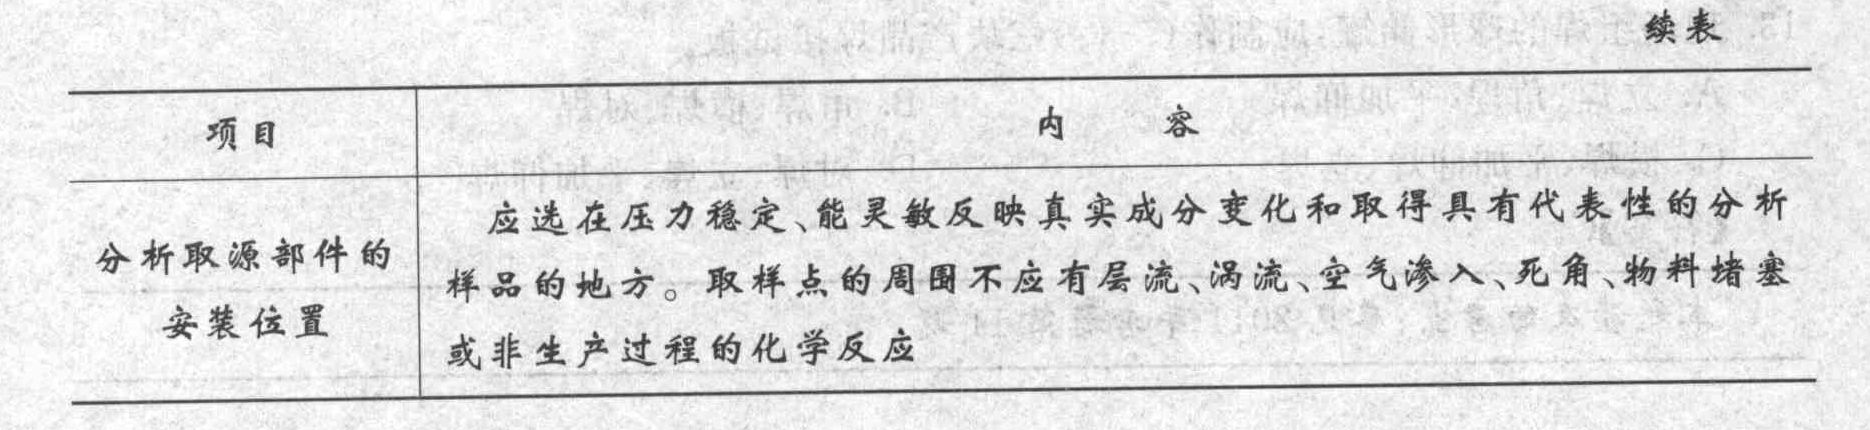 续表
项目
内容
分析取源部件的
安装位置
应选在压力稳定、能灵敏反映真实成分变化和取得具有代表性的分析
样品的地方。取样点的周围不应有层流、涡流、空气渗入、死角、物料堵塞
或非生产过程的化学反应